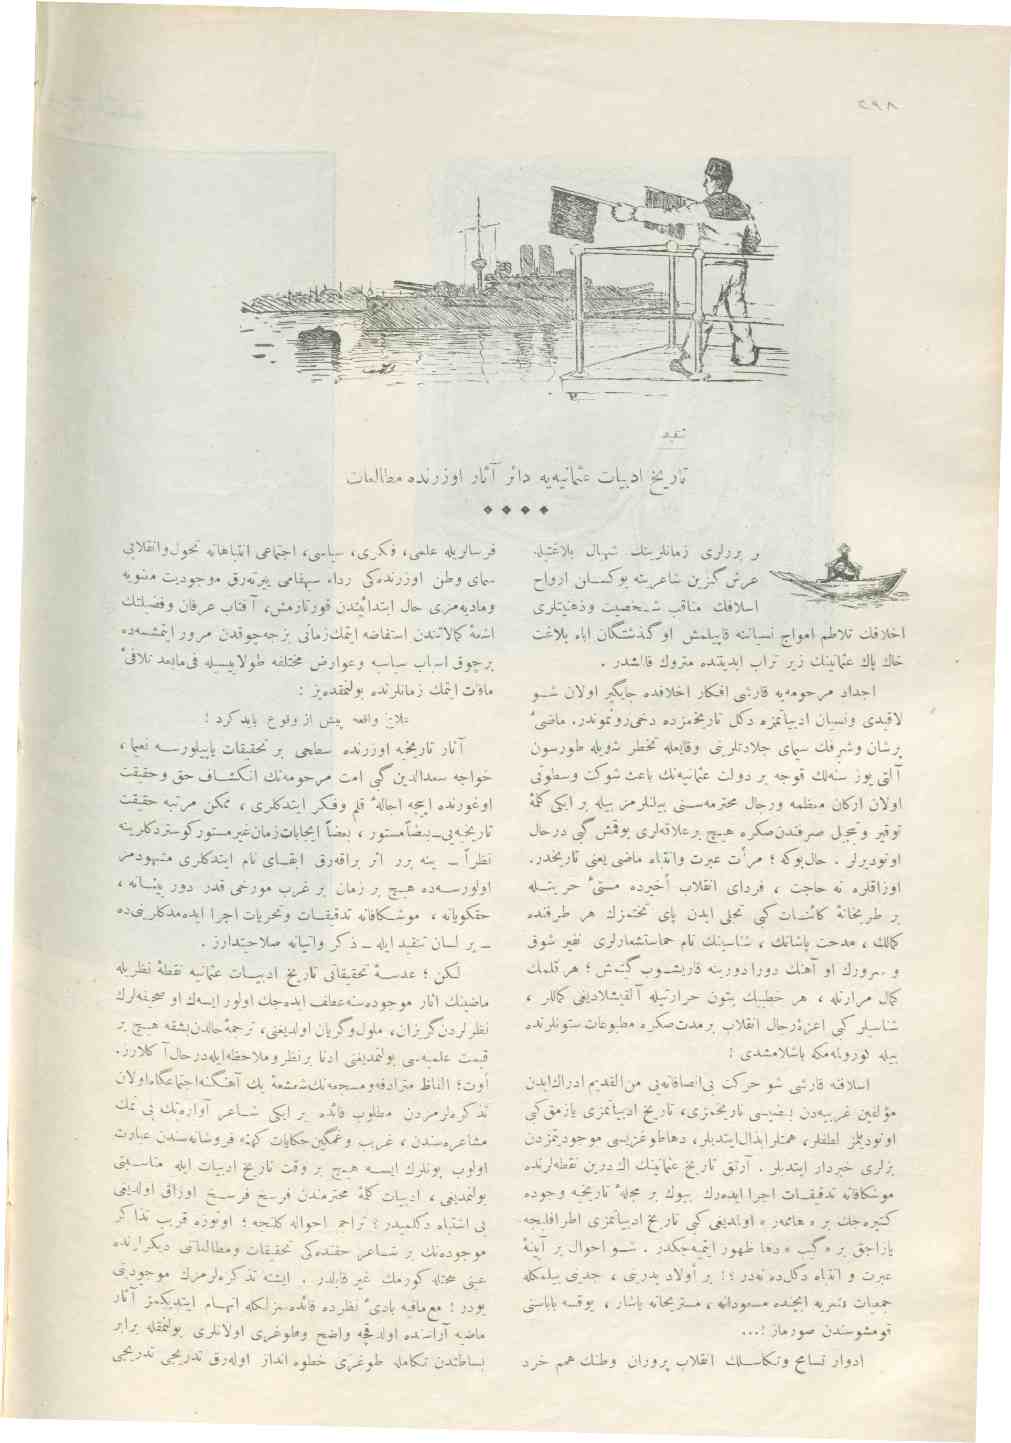 ٤٩٨
تنقيد
تاريخ ادبيات عثمانيه‌يه دائر آثار اوزرنده مطالعات
و بررلرى زمانلرينك شهبال بلاغتيله
عرش كزين شاعريته يوكسلن ارواح
اسلافك مناقب شخصيت وذهنيتلرى
اخلافك تلاطم امواج نسيانه قاپيلمش او كذشتكان اباء بلاغت
خاك پاك عثمانينك زير تراب ابديتنده متروك قالمشدر .
اجداد مرحومه‌يه قارشى افكار اخلافده جايكير اولان شو
لاقيدى ونسيان ادبياتمزه دكل تاريخمزده دخى رونموندر. ماضئ
پرشان وشرفك سيماى جلادتلرينى وقايعله تخطر شويله طورسون
آلتى يوز سنه‌لك قوجه بر دولت عثمانيه‌نك باعث شوكت وسطوتى
اولان اركان معظمه ورجال محترمه‌سنى بيلنلرمز بيله بر ايكى كلمهٔ
توقير وتبجيلى صرفندن‌صكره هيچ برعلاقه‌لرى يوقمش كبى درحال
اونوديرلر . حال‌بوكه ؛ مرآت عبرت وانتباه ماضى يعنى تاريخدر.
اوزاقلره نه حاجت ، فرداى انقلاب أخيرده مستئ حريتله
بر طربخانهٔ كائنات كبى تجلى ايدن پاى تختمزك هر طرفنده
كمالك ، مدحت پاشانك ، شناسينك نام حماستشعارلرى نفير شوق
و سرورك او آهنك دورا دورينه قاريشوب كيتمش ؛ هر قلمك
كمال مرارتله ، هر خطيبك بتون حرارتيله آلقيشلاديغى كماللر ،
شناسلر كبى اعزهٔ رجال انقلاب برمدت‌صكره مطبوعات ستونلرنده
بيله كورولمه‌مكه باشلامشدى !
اسلافنه قارشى شو حركت بى‌انصافانه‌يى من‌القديم ادراك‌ايدن
مؤلفين غربيه‌دن بعضيسى تاريخمزى، تاريخ ادبياتمزى يازمق‌كبى
اونوديلمز لطفلر، همتلر ابذال‌ايتديلر، دهاطوغريسى موجوديتمزدن
بزلرى خبردار ايتديلر . آرتق تاريخ عثمانينك اك درين نقطه‌لرنده
موشكافانه تدقيقات اجرا ايده‌رك بيوك بر مجلهٔ تاريخيه وجوده
كتيره‌جك بر « هاممر » اولديغى كبى تاريخ ادبياتمزى اطرافليجه
يازاجق بر « كيب » دها ظهور ايتميه‌جكدر . شو احوال بر آيينهٔ
عبرت و انتباه دكل‌ده نه‌در ؟! بر أولاد پدرينى ، جدينى بيلمكله
جمعيات بشريه ايچنده مسعودانه ، مستريحانه ياشار ، يوقسه باباسنى
قومشوسندن صورماز !...
ادوار تسامح وتكاسلك انقلاب پروران وطنك همم خرد
فرسالريله علمى، فكرى، سياسى، اجتماعى انتباهاته تحول‌وانقلابى
سماى وطن اوزرنده‌كى رداء سيهفامى ييرته‌رق موجوديت معنويه
وماديه‌مزى حال ابتدائيتدن قورتارمش، آفتاب عرفان وفضيلتك
اشعهٔ كمالاتندن استفاضه ايتمك‌زمانى برجه‌چوقدن مرور ايتمشسه‌ده
برچوق اسباب سياسيه وعوارض مختلفه طولاييسيله فى‌مابعد تلافئ
مافات ايتمك زمانلرنده بولنمقده‌يز :
علاج واقعه پيش از وقوع بايد كرد !
آثار تاريخيه اوزرنده سطحى بر تحقيقات ياپيلورسه نعيما ،
خواجه سعدالدين كبى امت مرحومه‌نك انكشاف حق وحقيقت
اوغورنده ايجه احالهٔ قلم وفكر ايتدكلرى ، ممكن مرتبه حقيقت
تاريخيه‌يى ـ بعضاً مستور ، بعضاً ايجابات‌زمان‌غيرمستوركوستردكلرينه
نظراً ـ ينه برر اثر براقه‌رق ابقاى نام ايتدكلرى مشهودمز
اولورسه‌ده هيچ بر زمان بر غرب مورخى قدر دور بينانه ،
حقكويانه ، موشكافانه تدقيقات وتحريات اجرا ايده‌مدكلرينى‌ده
ـ بر لسان تنقيد ايله ـ ذكر واتيانه صلاحيتدارز .
لكن ؛ عدسهٔ تحقيقاتى تاريخ ادبيات عثمانيه نقطهٔ نظريله
ماضينك اثار موجوده‌سنه‌عطف ايده‌جك اولور ايسه‌ك او صحيفه‌لرك
نظرلردن‌كريزان، ملول‌وكريان اولديغنى، ترجمهٔ حالدن‌بشقه هيچ بر
قيمت علميه‌يى بولنمديغنى ادنا برنظروملاحظه‌ايله‌درحال‌آكلارز.
أوت؛ الفاظ مترادفه‌ومسجعه‌نك‌شعشعهٔ يك آهنكنه‌اجتماعكاه‌اولان
تذكره‌لرمزدن مطلوب فائده بر ايكى شاعر آواره‌نك بى نمك
مشاعره‌سندن ، غريب وغمكين‌حكايات كهنه فروشانه‌سندن عبارت
اولوب بونلرك ايسه هيچ بر وقت تاريخ ادبيات ايله مناسبتى
بولنمديغى ، ادبيات كلمهٔ محترمندن فرسخ فرسخ اوزاق اولديغى
بى اشتباه دكلميدر ؟ تراجم احواله كلنجه ؛ اونوزه قريب تذاكر
موجوده‌نك بر شاعر حقنده‌كى تحقيقات ومطالعاتنى ديكرلرنده
عينى سخنله كورمك غير قابلدر . ايشته تذكره‌لرمزك موجوديتى
بودر ! مع‌مافيه بادئ نظرده فائده‌سزلكله اتهام ايتديكمز آثار
ماضيه آراسنده اولدقجه واضح وطوغرى اولانلرى بولنمقله برابر
بساطتدن تكامله طوغرى خطوه انداز اوله‌رق تدريجى تدريجى